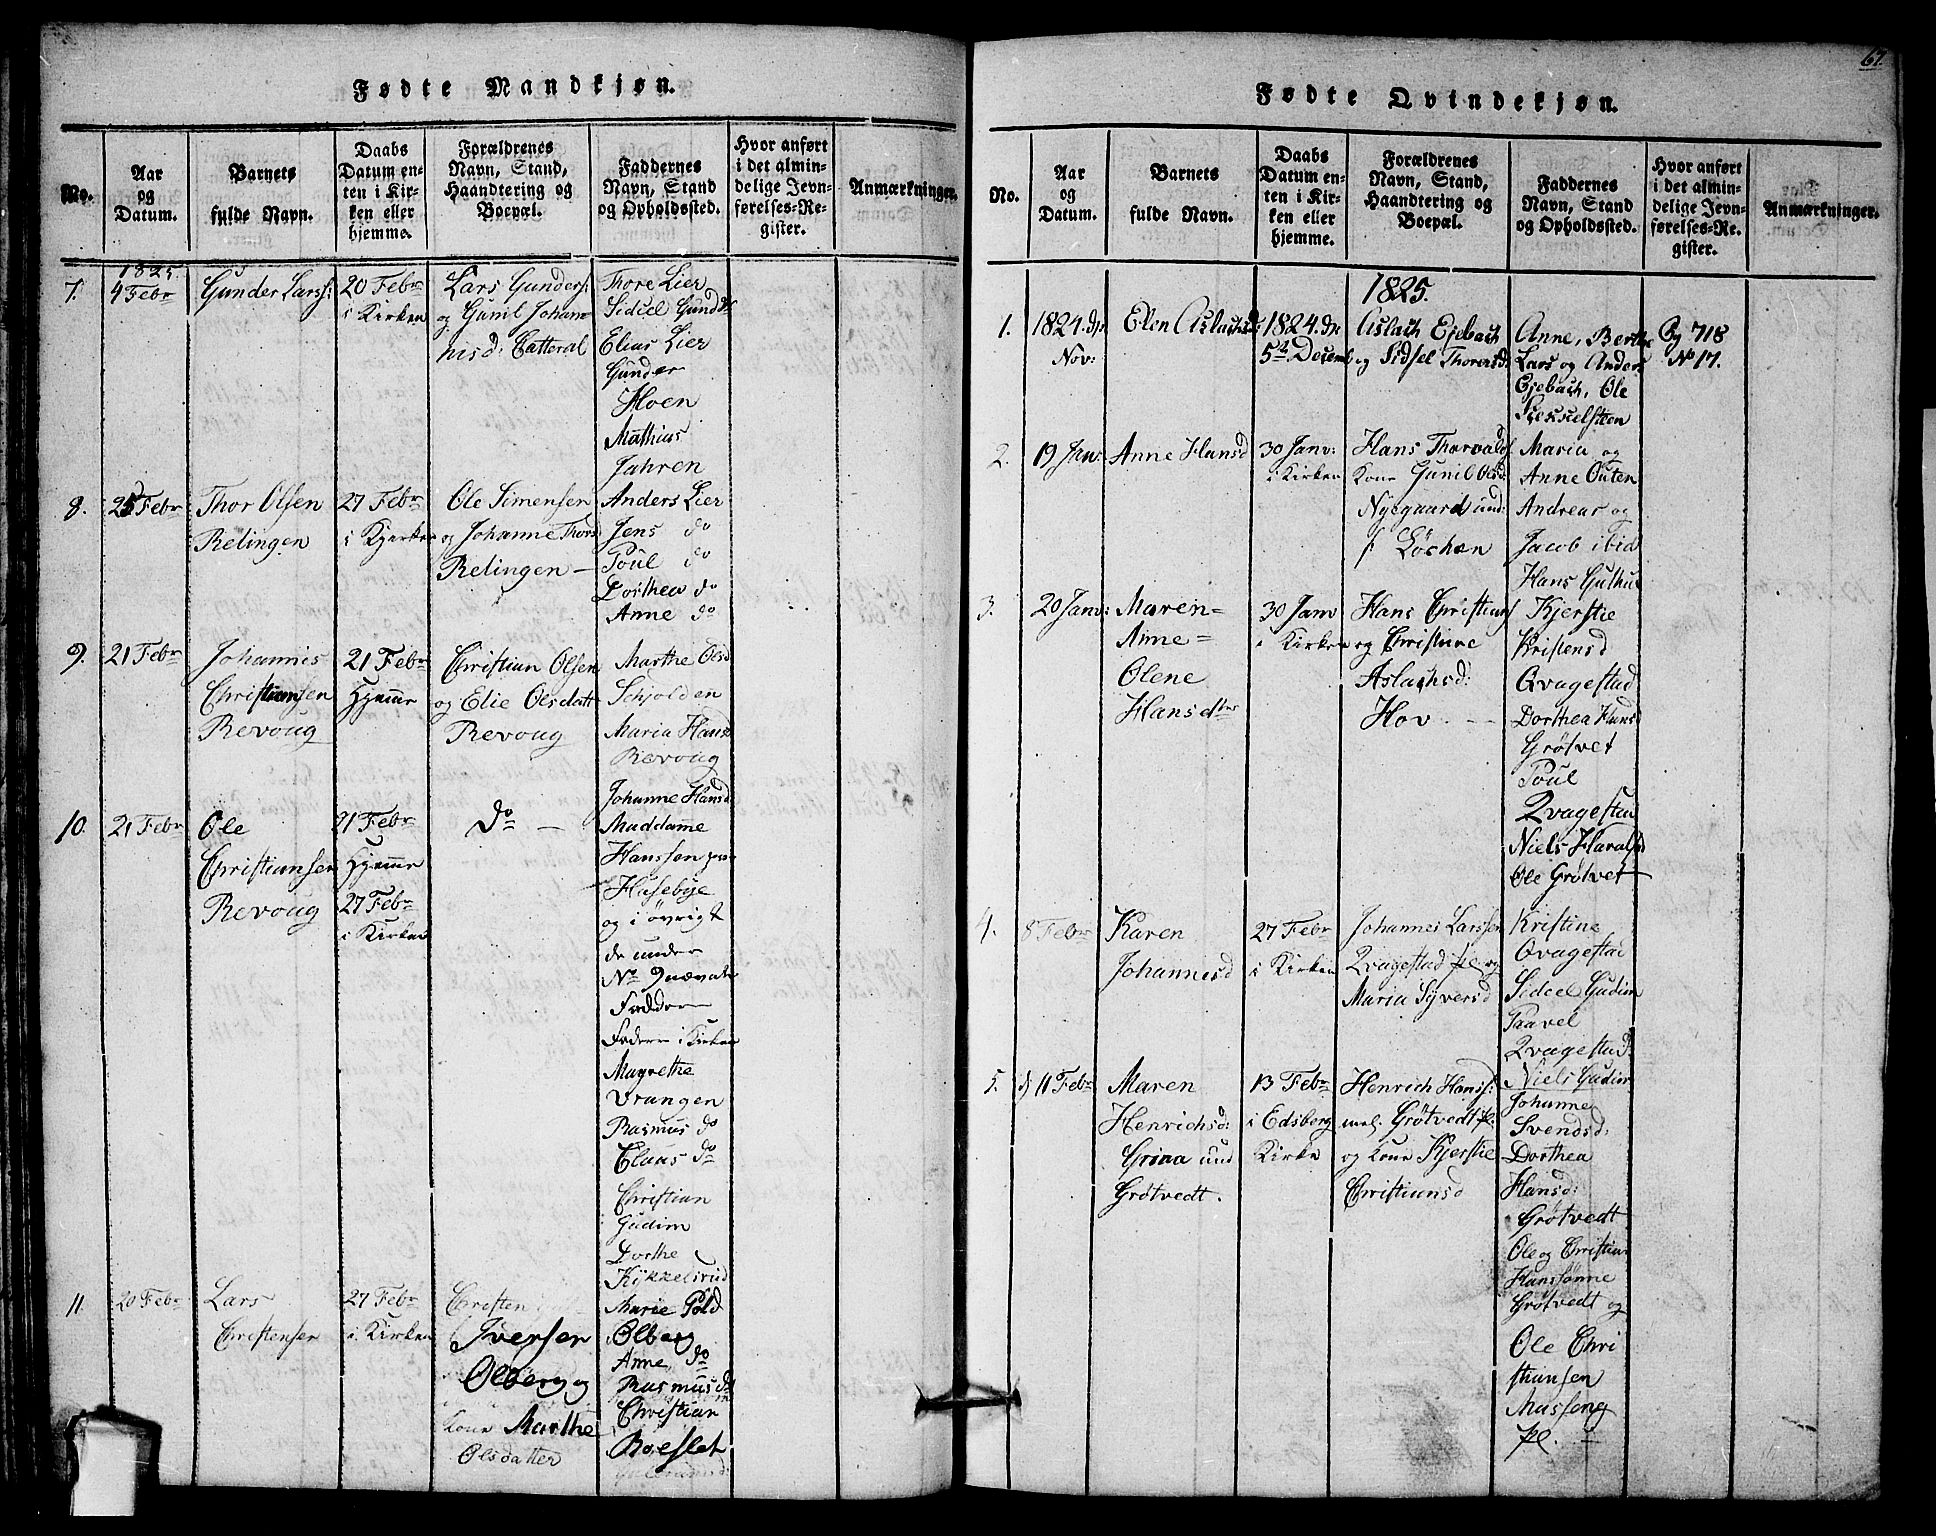 Fødte Mandkjøn.
No.
Aar
og
Datum.
Barnets
fulde Navn.
Daabs
Datum en-
ten i Kir-
ken eller
hjemme.
Forældrenes
Navn, Stand,
Haandtering og
Boepæl.
Faddernes
Navn, Stand
og Opholdssted.
Hvor anført
i det almin-
delige Jevn-
førelses-Re-
gister.
Anmærkninger.
7.
1825.
4 Febr
Gunder Larss:
20 Febr
i Kirken
Lars Gunders:
og Gunil Johan
nisd:
Thore Lier
Sidsel
Elias Lier
Gunder
Hoen
Mathias
Jahren
8.
25 Febr
Thor Olsen
Relingen
27 Febr
i Kjerken
Ole Simensen
og Johanne Thors
Relingen —
Anders Lier
Jens do
Poul do
Dorthea do
Anne do
9.
21 Febr
Johannis
Christiansen
Revoug
21 Febr
Hjemme
Christian Olsen
og Elie Olsdatt
Revoug
Marthe Olsd
Schjolden
Maria Hans
Revoug
Johanne Hansd
10.
21 Febr
Ole
Christiansen
Revoug
21 Febr
Hjemme
27 Febr
i Kirken
do —
Maddame
Hanssen
Hasebye
og i øvrigt
de under
No 9 nævnte
Faddere
Faddere i Kirken
Magrethe
Vrangen
Rasmus do
Claus do
Christian
Gudim
Dorthe
Kykkelsrud
11
20 Febr
Lars
Christensen
27 Febr
i Kirken
Christen
Iversen
Olberg og
Kone Marthe
Olsdatter
Marie
Olberg
Anne, do
Rasmus do
Christian
Boeslet
67.
Fødte Qvindekjøn.
No.
Aar
og
Datum.
Barnets
fulde Navn.
Daabs
Datum en-
ten i Kir-
ken eller
hjemme.
Forældrenes
Navn, Stand,
Haandtering og
Boepæl.
Faddernes
Navn, Stand
og Opholdssted.
Hvor anført
i det almin-
delige Jevn-
førelses-Re-
gister.
Anmærkninger.
1825.
1.
1824. d
Nov:
Elen Aslachsd:
1824. d
5te Decemb
Aslach Ejebach
og Sidsel Thoresd:
Anne, Berthe
Lars og Anders
Ejebach, Ole
Pag 718
No 17.
2.
19 Jan:
Anne Hansd
30 Janv:
i Kirken
Hans Thorvalds
Kone Gunil Olsd:
Nyegaard und:
Løchen
Maria og
Anne Outen
Andreas og
Jacob ibid
Hans Guthus
3.
20 Janv:
Maren=
Anne=
Olene
Hansdter
30 Janv
i Kirken
Hans Christians
og Christine
Aslachsd:
Hov. —
Kjerstie
Kristensd
Qvagestad
Dorthea Hansd
Grøtvet
Poul
Qvagestad
Niels Haralsd
Ole Grøtvet
4.
8 Febr
Karen
Johannesd
27 Febr
i Kirken
Johannes Larssen
Qvagestad pl. og
Maria Syversd
Kristine
Qvagestad
Sidsel Gudim
Paavel
Qvagestad
5.
d 11 Febr
Maren
Henrichsd:
Griaa und
Grøtvedt.
13 Febr
i Edsberg
Kirke
Henrich Hanss:
Grøtvedt pl.
og Kone Kjerstie
Christiansd
Niels Gudim
Johanne
Svendsd:
Dorthea
Hansd:
Grøtvedt
Ole og Christian
Hanssønne
Grøtvedt og
Ole Chri
stiansen
Massong
pl. —